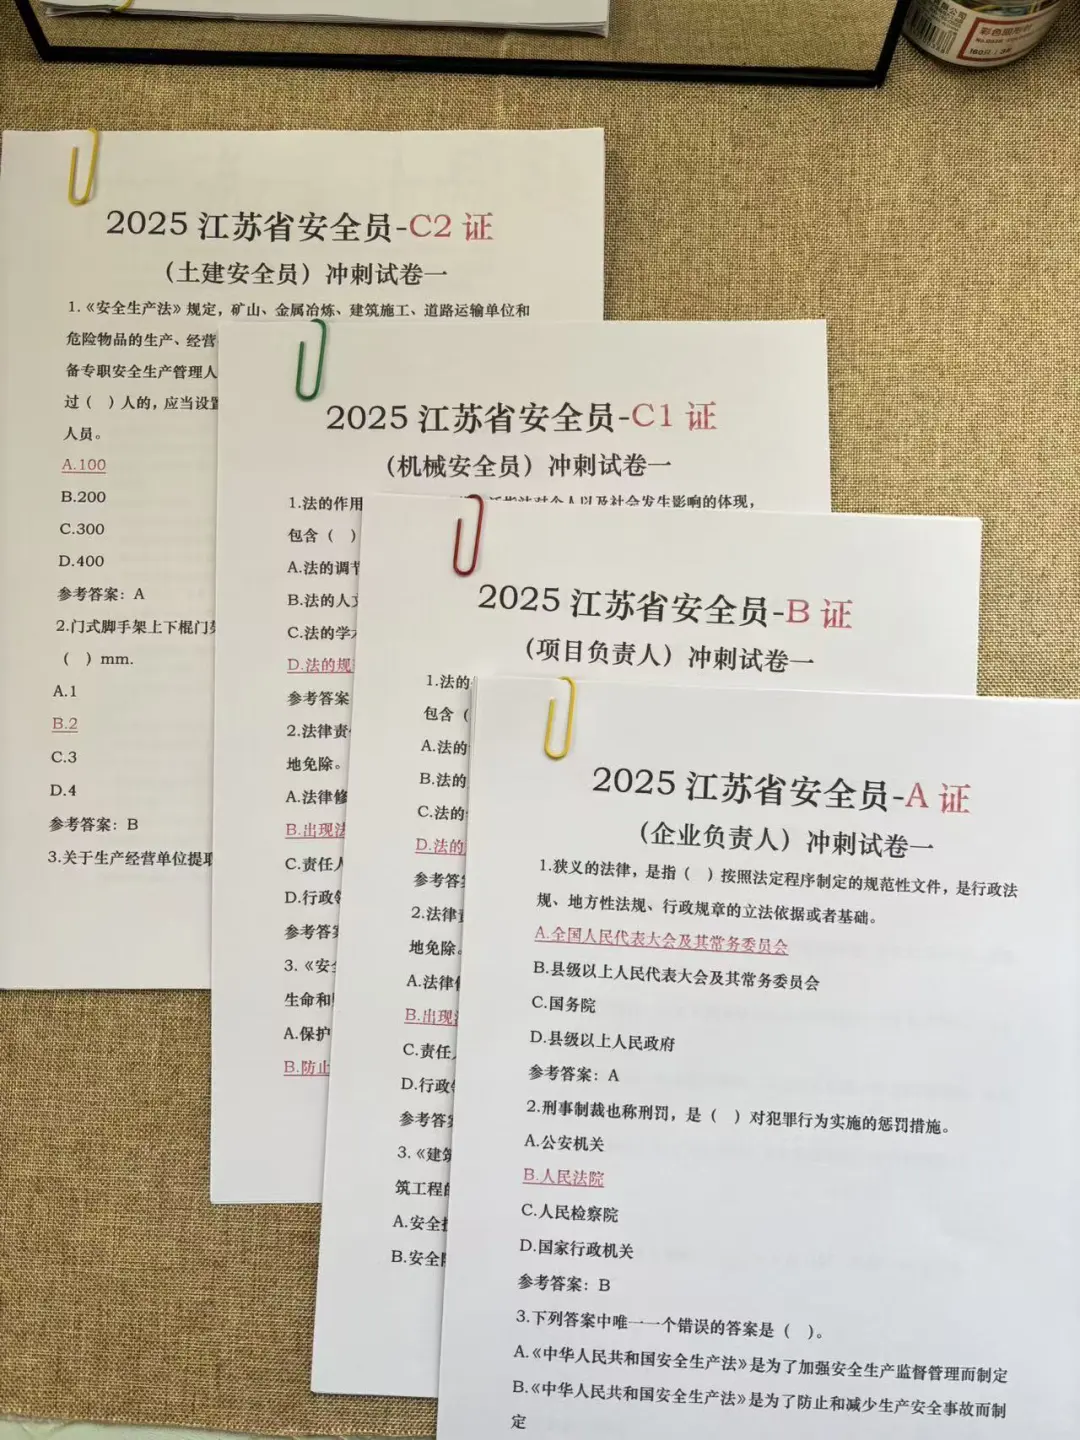 彩色回形针
160只
2025 江苏省安全员-C2 证
（土建安全员）冲刺试卷一
1.《安全生产法》规定，矿山、金属冶炼、建筑施工、道路运输单位和
危险物品的生产、经营
备专职安全生产管理人
过（ ）人的，应当设置
人员。
A.100
B.200
C.300
D.400
参考答案：A
2.门式脚手架上下棍门架
（ ）mm.
A.1
B.2
C.3
D.4
参考答案：B
3.关于生产经营单位提取
2025 江苏省安全员-C1 证
（机械安全员）冲刺试卷一
1.法的作用 是指法对个人以及社会发生影响的体现，
包含（ ）
A.法的调节
B.法的人文
C.法的学术
D.法的规
参考答案
2.法律责
地免除。
A.法律修
B.出现法
C.责任人
D.行政领
参考答案
3.《安全
生命和
A.保护
B.防止
2025 江苏省安全员-B 证
（项目负责人）冲刺试卷一
1.法的
包含（
A.法的
B.法的
C.法的
D.法的
参考答
2.法律责
地免除。
A.法律
B.出现法
C.责任
D.行政
参考答
3.《建筑
筑工程的
A.安全
B.安全
2025 江苏省安全员-A 证
（企业负责人）冲刺试卷一
1.狭义的法律，是指（ ）按照法定程序制定的规范性文件，是行政法
规、地方性法规、行政规章的立法依据或者基础。
A.全国人民代表大会及其常务委员会
B.县级以上人民代表大会及其常务委员会
C.国务院
D.县级以上人民政府
参考答案：A
2.刑事制裁也称刑罚，是（ ）对犯罪行为实施的惩罚措施。
A.公安机关
B.人民法院
C.人民检察院
D.国家行政机关
参考答案：B
3.下列答案中唯一一个错误的答案是（ ）。
A.《中华人民共和国安全生产法》是为了加强安全生产监督管理而制定
B.《中华人民共和国安全生产法》是为了防止和减少生产安全事故而制
定